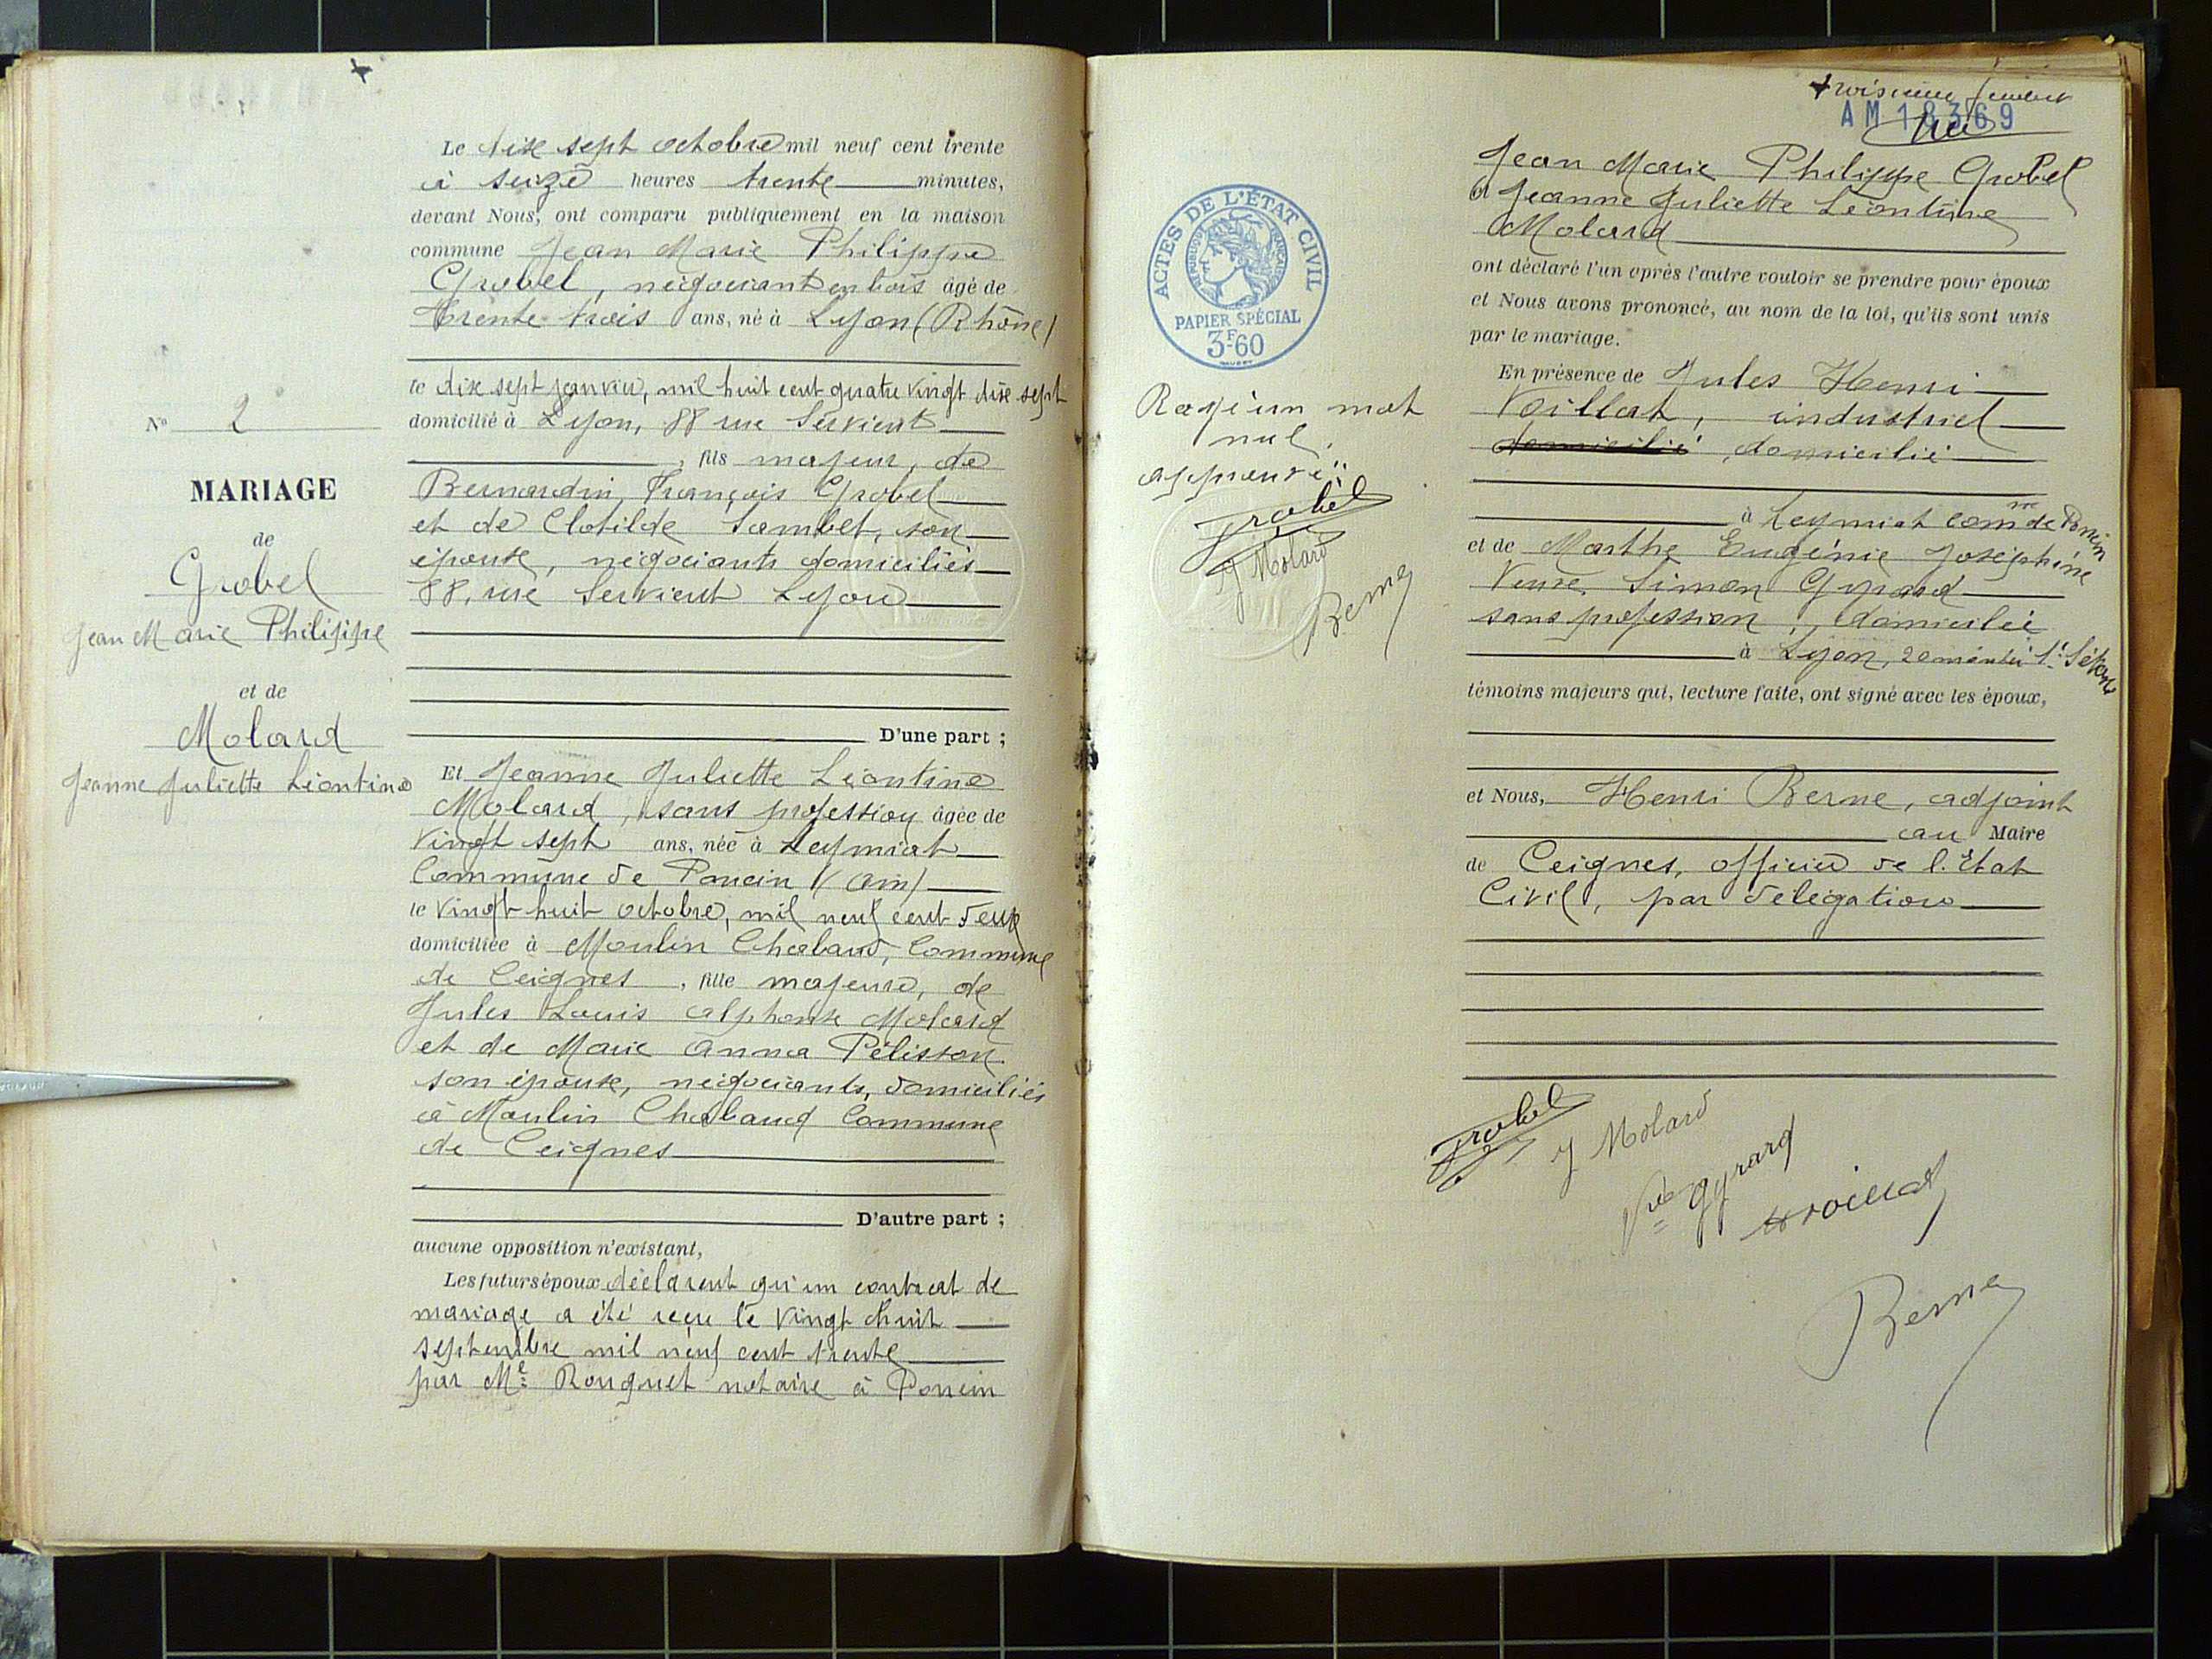 Le dix sept octobre mil neuf cent trente
à seize heures trente minutes,
devant Nous, ont comparu publiquement en la maison
commune Jean Marie Philippe
Grobel, négociant en bois âgé de
trente trois ans, né à Lyon (Rhône)
le dix sept janvier, mil huit cent quatre vingt dix sept
domicilié à Lyon, 88 rue Servient
, fils majeur, de
Bernardin, François Grobel
et de Clotilde Sambet, son
épouse, négociants domiciliés
88, rue Servient Lyon
D'une part ;
Et Jeanne Juliette Léontine
Molard, sans profession âgée de
vingt sept ans, née à Leymiat
Commune de Poncin (Ain)
le vingt huit octobre, mil neuf cent deux
domiciliée à Moulin Chabaud, Commune
de Ceignes, fille majeure, de
Jules Louis Alphonse Molard
et de Marie Anna Pélisson
son épouse, négociants, domiciliés
à Moulin Chabaud Commune
de Ceignes
D'autre part ;
aucune opposition n'existant,
Les futurs époux déclarent qu'un contrat de
mariage a été reçu le vingt huit
septembre mil neuf cent trente
par Me Rouquet notaire à Poncin
No 2
MARIAGE
de
Grobel
Jean Marie Philippe
et de
Molard
Jeanne Juliette Léontine
troisième feuillet
AM 18369
Jean Marie Philippe Grobel
et Jeanne Juliette Léontine
Molard
ont déclaré l'un après l'autre vouloir se prendre pour époux
et Nous avons prononcé, au nom de la loi, qu'ils sont unis
par le mariage.
En présence de Jules Henri
Voillat, industriel
domicilié, domicilié
à Leymiat comne de Poncin
et de Marthe Eugénie Joséphine
Veuve Simon Gyrard
sans profession, domiciliée
à Lyon, 20 montée St Sébast
témoins majeurs qui, lecture faite, ont signé avec les époux,
et Nous, Henri Berne, adjoint
au Maire
de Ceignes, officier de l'Etat
Civil, par délégation
Grobel
J Molard
Vve Gyrard
Voillat
Berne
ACTES DE L'ÉTAT CIVIL
RÉPUBLIQUE FRANÇAISE
PAPIER SPÉCIAL
3F60
Rayé un mot
nul.
approuvé
Grobel
J Molard
Berne